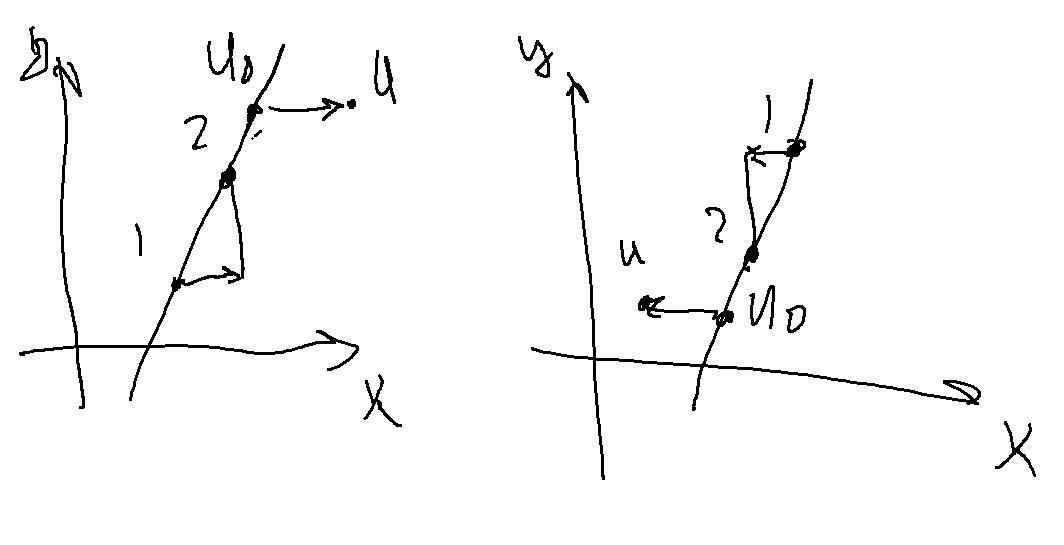 y
u₀
u
2
1
x
y
1
2
u
u₀
x